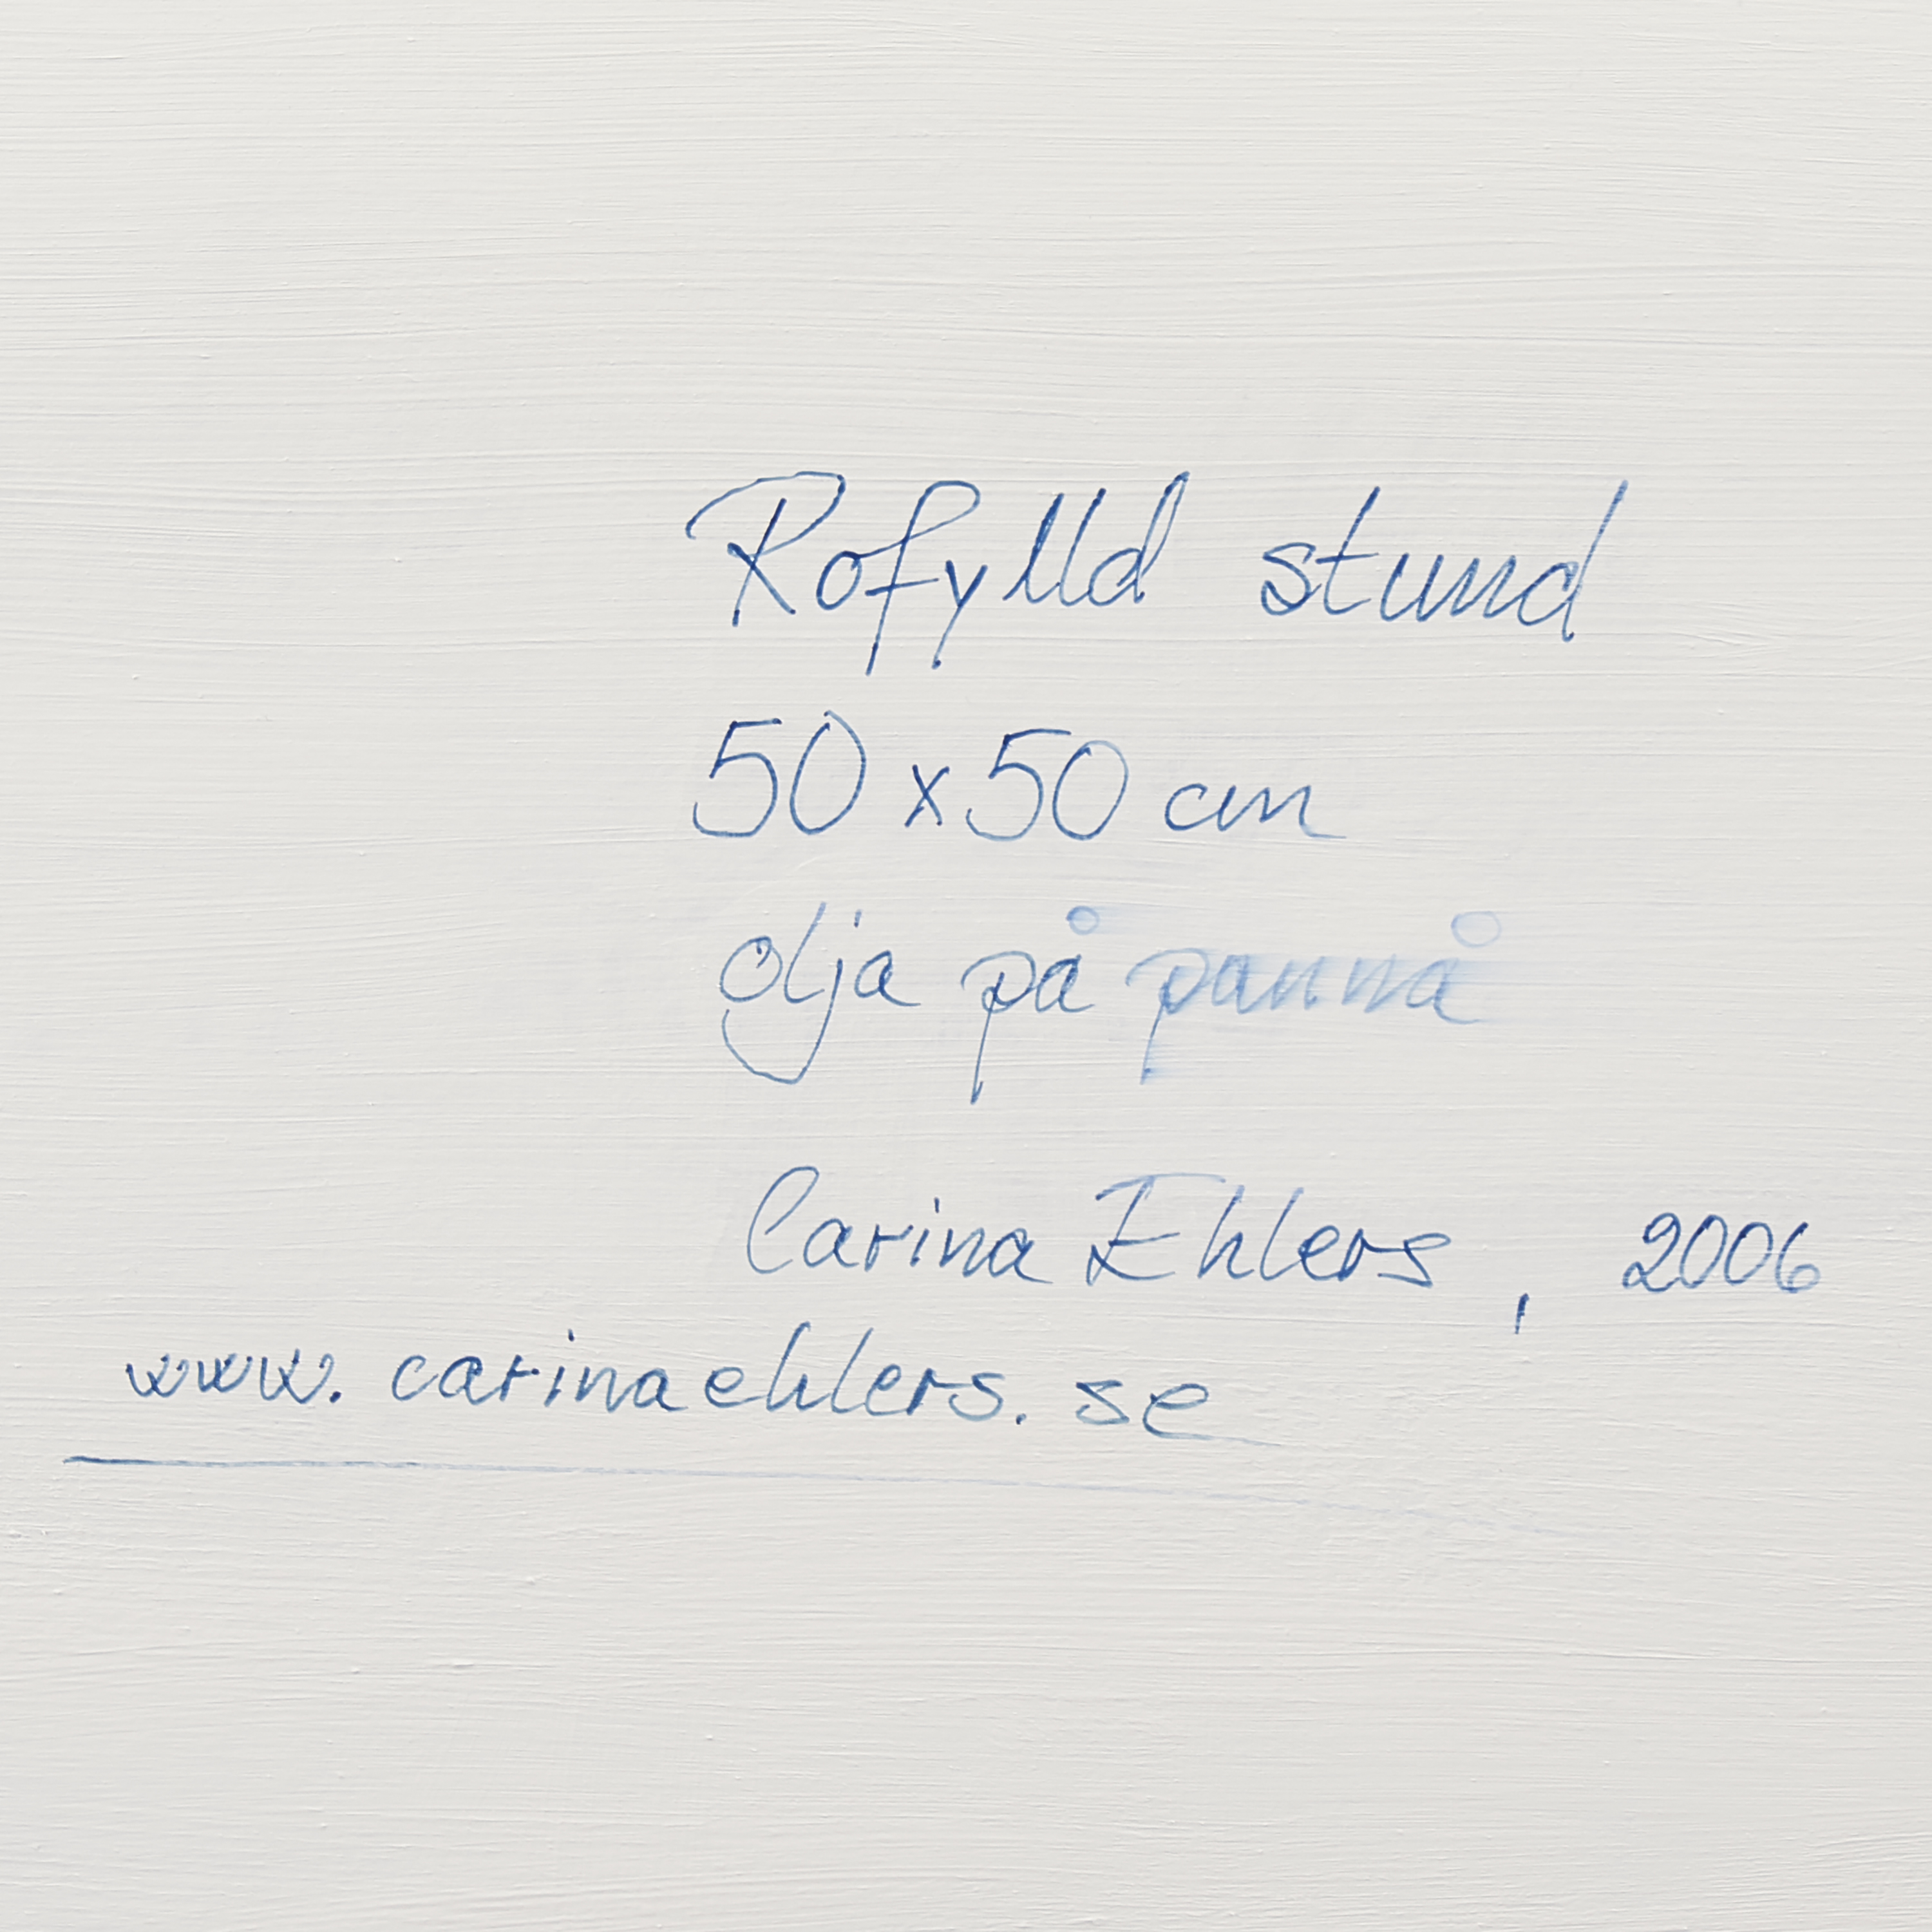 Rofylld stund
50 x 50 cm
olja på pannå
Carina Ehlers, 2006
www.carinaehlers.se